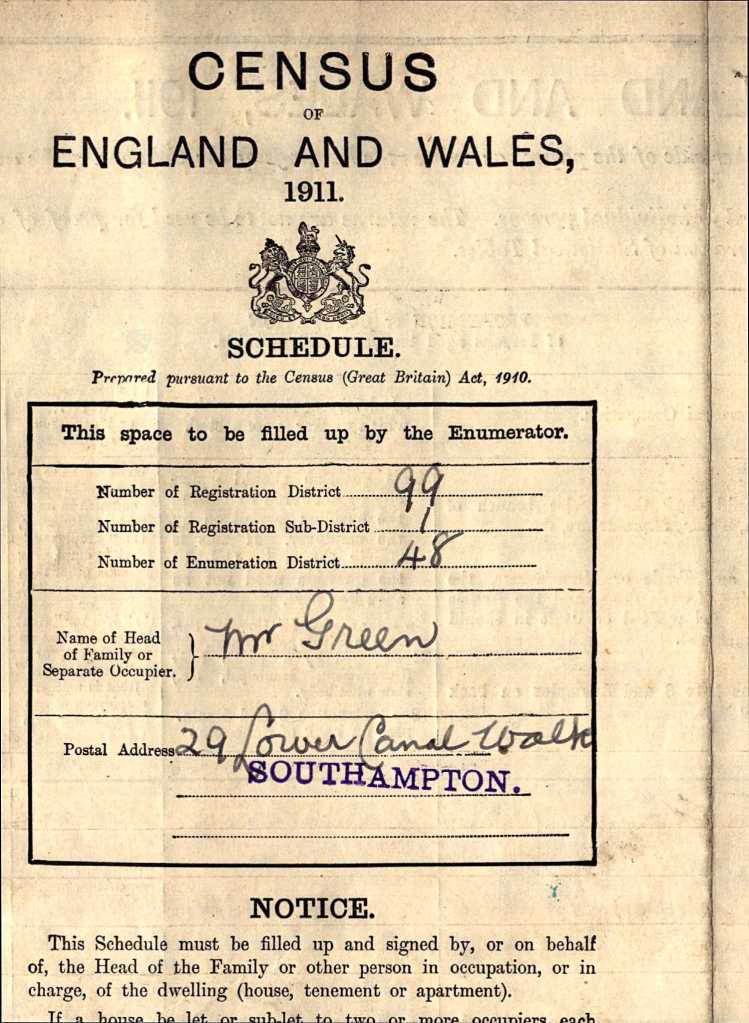 CENSUS
OF
ENGLAND AND WALES,
1911.
SCHEDULE.
Prepared pursuant to the Census (Great Britain) Act, 1910.
This space to be filled up by the Enumerator.
Number of Registration District 99
Number of Registration Sub-District 1
Number of Enumeration District 48
Name of Head
of Family or
Separate Occupier. } Mr Green
Postal Address 29 Lower Canal Walk
SOUTHAMPTON.
NOTICE.
This Schedule must be filled up and signed by, or on behalf
of, the Head of the Family or other person in occupation, or in
charge, of the dwelling (house, tenement or apartment).
If a house be let or sub-let to two or more occupiers each